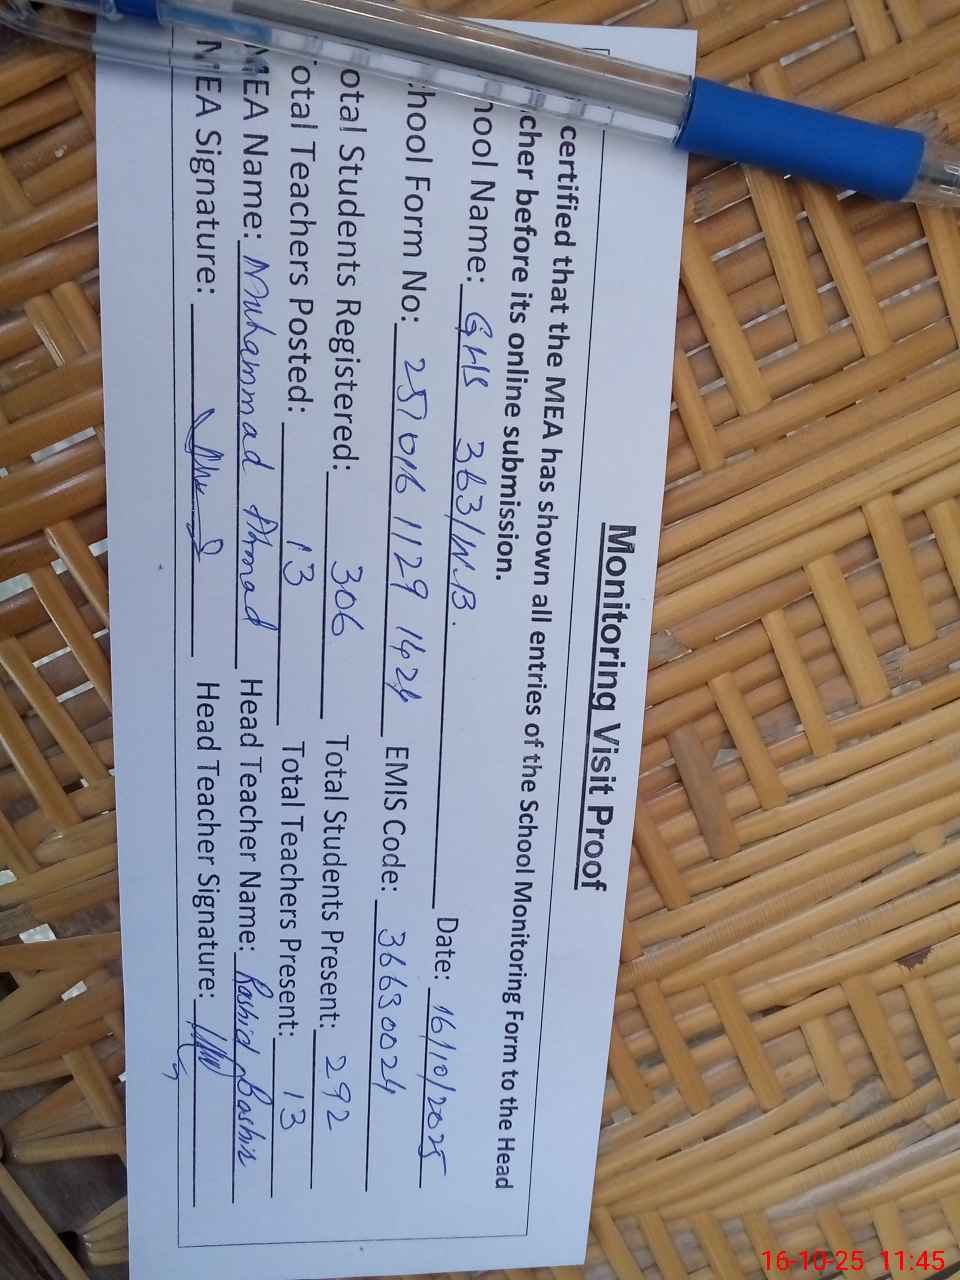 Monitoring Visit Proof
certified that the MEA has shown all entries of the School Monitoring Form to the Head
cher before its online submission.
hool Name: GHS 363/W.B. Date: 16/10/2025
hool Form No: 257016 1129 1424 EMIS Code: 36630024
otal Students Registered: 306 Total Students Present: 292
otal Teachers Posted: 13 Total Teachers Present: 13
MEA Name: Muhammad Ahmad Head Teacher Name: Rashid Bashir
MEA Signature: Head Teacher Signature:
16-10-25 11:45